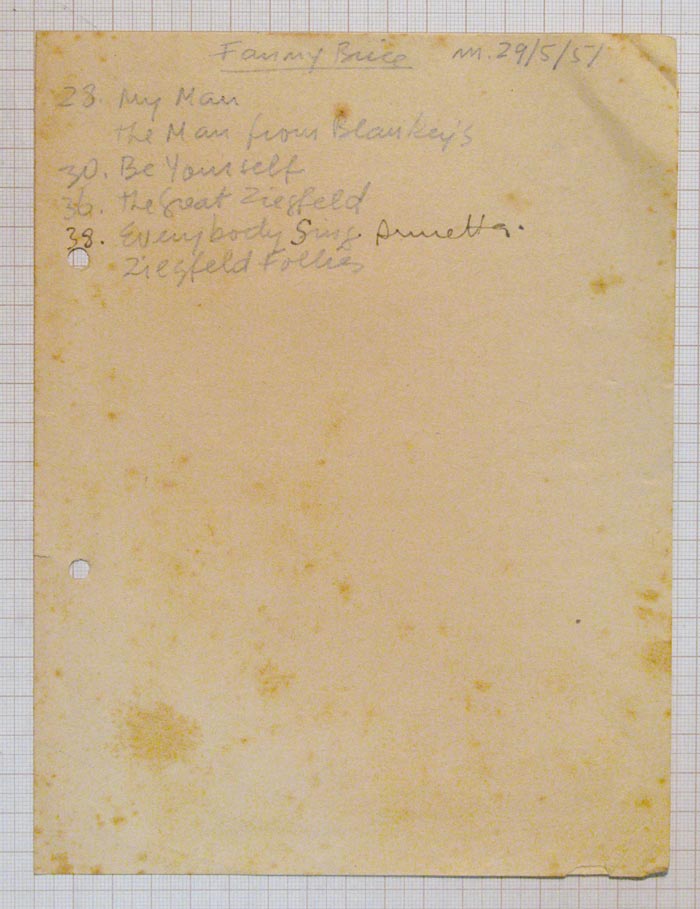 Fanny Brice m. 29/5/51
28. My Man
the Man from Blankey's
30. Be Yourself
36. the Great Ziegfeld
38. Everybody Sing. Annetta.
Ziegfeld Follies